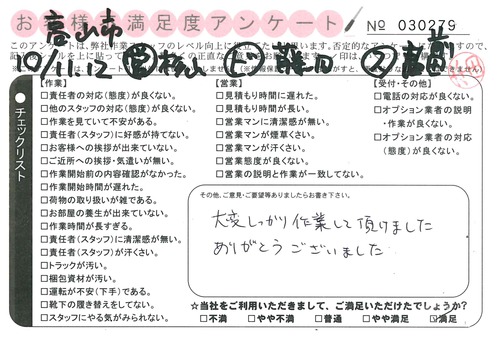 お客様満足度アンケート
No 030279
高山市
10/11.12
【作業】
□責任者の対応(態度)が良くない。
□他のスタッフの対応(態度)が良くない。
□作業を見ていて不安がある。
□責任者(スタッフ)に好感が持てない。
□お客様への挨拶が出来ていない。
□ご近所への挨拶・気遣いが無い。
□作業開始前の内容確認がなかった。
□作業開始時間が遅れた。
□荷物の取り扱いが雑である。
□お部屋の養生が出来ていない。
□作業時間が長すぎる。
□責任者(スタッフ)に清潔感が無い。
□責任者(スタッフ)が汗くさい。
□トラックが汚い。
□梱包資材が汚い。
□運転が不安(下手)である。
□靴下の履き替えをしてない。
□スタッフにやる気がみられない。
【営業】
□見積もり時間に遅れた。
□見積もり時間が長い。
□営業マンに清潔感が無い。
□営業マンが煙草くさい。
□営業マンが汗くさい。
□営業態度が良くない。
□営業の説明と作業が一致してない。
【受付・その他】
□電話の対応が良くない。
□オプション業者の説明
・作業が良くない。
□オプション業者の対応
(態度)が良くない。
チェックリスト
その他、ご意見・ご要望等ありましたらお書き下さい。
大変しっかり作業して頂けました
ありがとうございました
☆当社をご利用いただきまして、ご満足いただけたでしょうか?
□不満 □やや不満 □普通 □やや満足 ☑満足